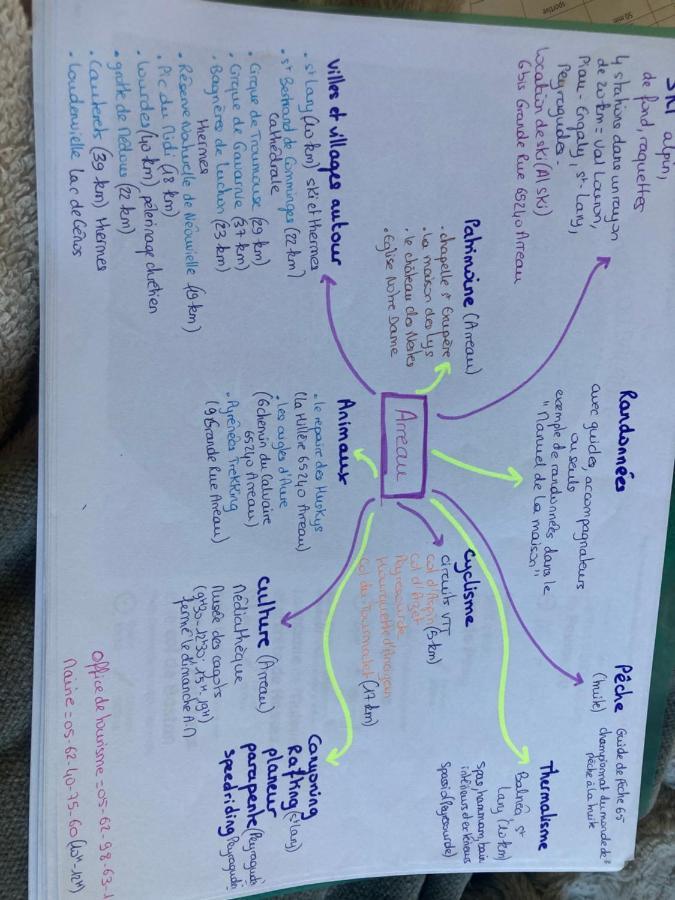 SKI alpin,
de fond, raquettes
4 stations dans un rayon
de 20 km = Val Louron,
Piau-Engaly, St-Lary,
Peyragudes.
location de ski (Al Ski)
6bis Grande Rue 65240 Arreau
Randonnées
avec guides, accompagnateurs
ou seuls
exemple de randonnées dans le
"Manuel de la maison"
Pêche
(truite)
Guide de Pêche 65
championnat du monde de
pêche à la truite
Patrimoine (Arreau)
• chapelle St Exupère
• la maison des Lys
• le château des Nestes
• Eglise Notre Dame
Arreau
Cyclisme
circuits VTT
Col d'Aspin (5 km)
Col d'Azet
Peyresourde
Hourquette d'Ancizan
Col du Tourmalet (17 km)
Thermalisme
Balnéa St
Lary (10 km)
spas, hammam, bain
intérieurs et extérieurs
Spassio (Peyresourde)
Villes et villages autour
• St Lary (10 km) ski et thermes
• St Bertrand de Comminges (22 km)
cathédrale
• Cirque de Troumouse (29 km)
• Cirque de Gavarnie (37 km)
• Bagnères de Luchon (23 km)
thermes
• Réserve Naturelle de Néouvielle (19 km)
• Pic du Midi (18 km)
• Lourdes (40 km) pèlerinage chrétien
• grotte de Médous (22 km)
• Cauterets (39 km) thermes
• Loudenvielle lac de Génos
Animaux
• le repaire des Huskys
(la Hillère 65240 Arreau)
• Les aigles d'Aure
(6 chemin du Calvaire
65240 Arreau)
• Pyrénées Trekking
(9 Grande Rue Arreau)
Culture (Arreau)
Médiathèque
Musée des cagots
(9H30-12H30; 15H-19H)
fermé le dimanche A.M
Canyoning
Rafting (St Lary)
planeur
parapente (Peyragudes)
speedriding Peyragudes
Office de tourisme = 05-62-98-63-1
Mairie = 05-62-40-75-60 (10H-12H)